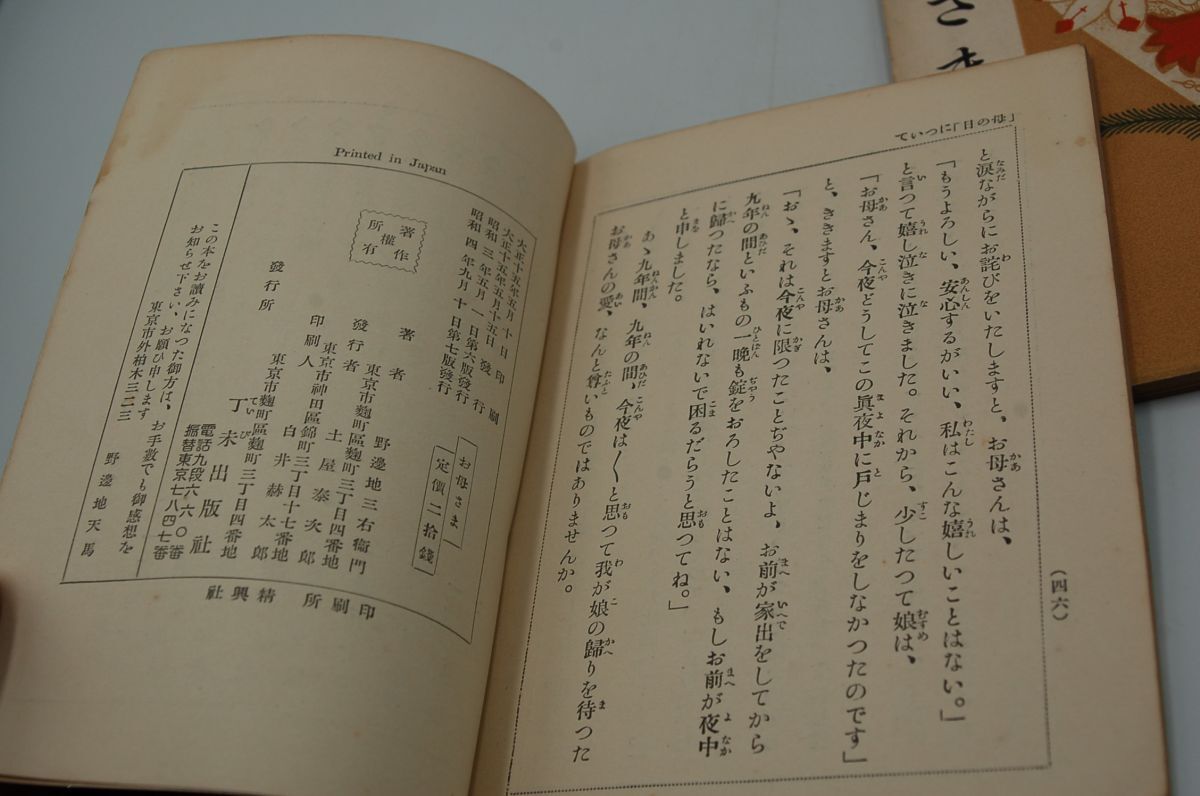 さま
「母の日」について
と涙ながらにお詫びをいたしますと、お母さんは、
「もうよろしい、安心するがいい、私はこんな嬉しいことはない。」
と言つて嬉し泣きに泣きました。それから、少したつて娘は、
「お母さん、今夜どうしてこの眞夜中に戸じまりをしなかつたのです」
と、ききますとお母さんは、
「おゝ、それは今夜に限つたことぢやないよ、お前が家出をしてから
九年の間といふもの一晩も錠をおろしたことはない、もしお前が夜中
に歸つたなら、はいれないで困るだらうと思つてね。」
と申しました。
あゝ九年間、九年の間、今夜は〱と思つて我が娘の歸りを待つた
お母さんの愛、なんと尊いものではありませんか。
(四六)
Printed in Japan
大正十五年五月十日印刷
大正十五年五月十五日發行
昭和三年五月一日第六版發行
昭和四年九月十日第七版發行
お母さま
定價二拾錢
著作權所有
著者 野邊地三右衞門
東京市麴町區麴町三丁目四番地
發行者 土屋泰次郎
東京市神田區錦町三丁目十七番地
印刷人 白井赫太郎
東京市麴町區麴町三丁目四番地
發行所 丁未出版社
電話九段六六〇番
振替東京七八四七番
この本をお讀みになつた御方は、お手數でも御感想を
お知らせ下さい、お願ひ申します
東京市外柏木三二三 野邊地天馬
印刷所 精興社